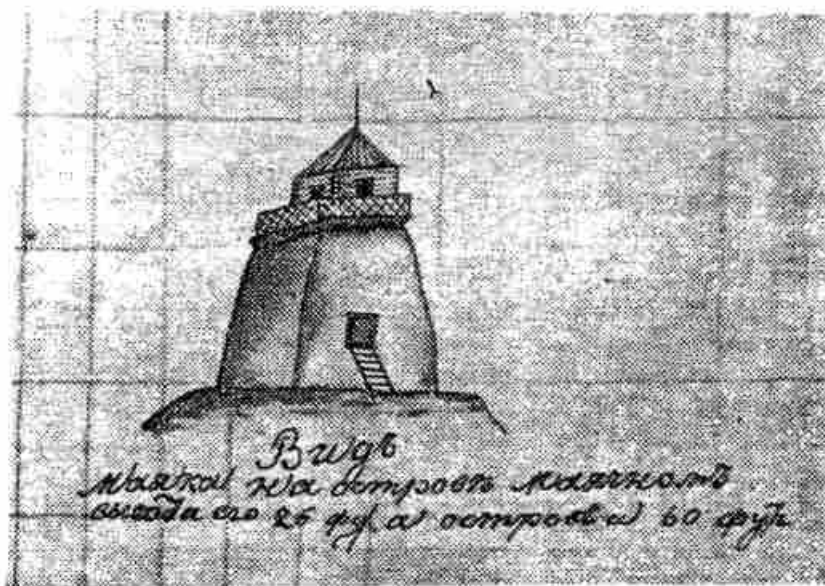 Видъ
маяка на островѣ маячномъ
высота его 26 фу. а острова 60 фуѣ